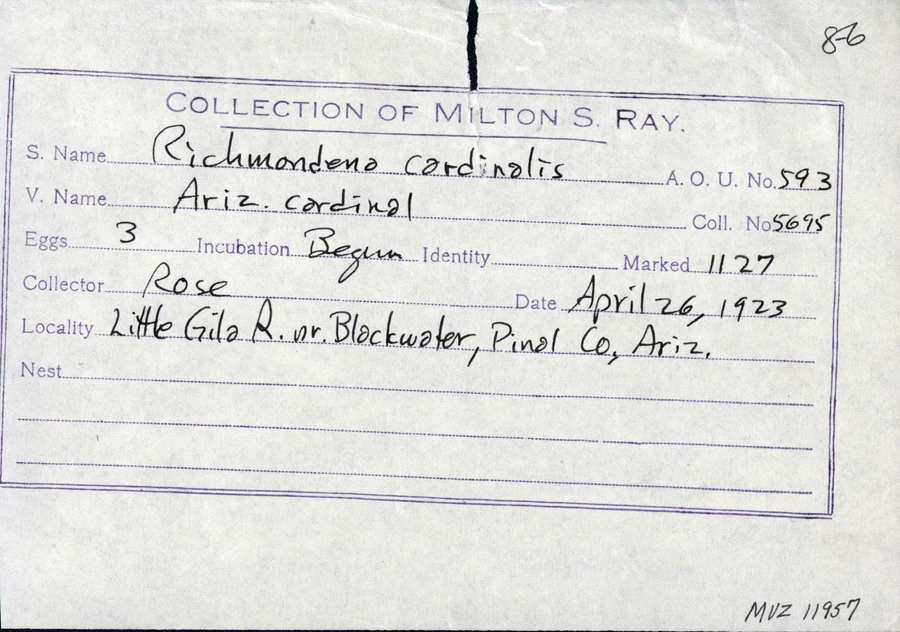 8-6
COLLECTION OF MILTON S. RAY.
S. Name Richmondena cardinalis A. O. U. No. 593
V. Name Ariz. cardinal Coll. No 5695
Eggs 3 Incubation Begun Identity Marked 1127
Collector Rose Date April 26, 1923
Locality Little Gila R. nr. Blackwater, Pinal Co, Ariz.
Nest
MVZ 11957